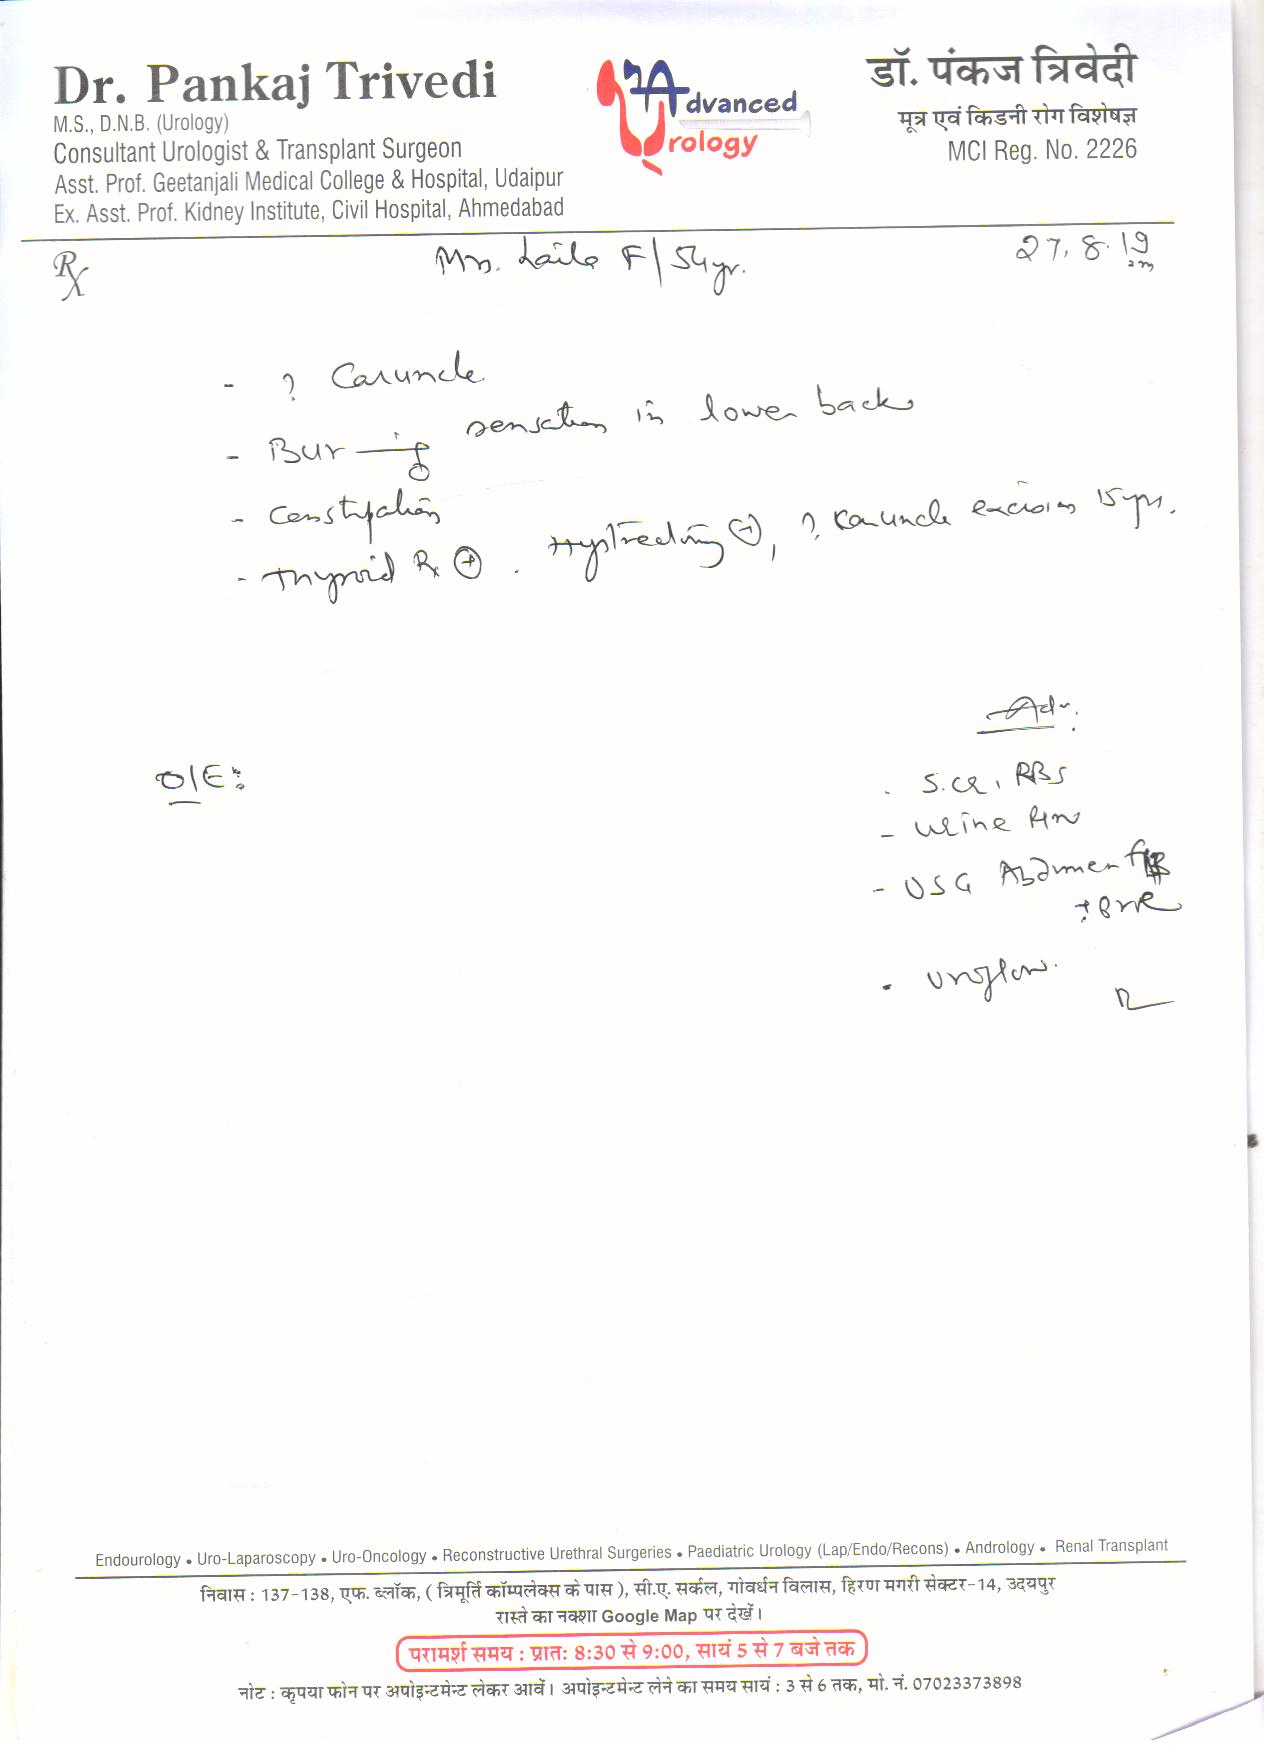 Dr. Pankaj Trivedi
M.S., D.N.B. (Urology)
Consultant Urologist & Transplant Surgeon
Asst. Prof. Geetanjali Medical College & Hospital, Udaipur
Ex. Asst. Prof. Kidney Institute, Civil Hospital, Ahmedabad
Advanced
Urology
डॉ. पंकज त्रिवेदी
मूत्र एवं किडनी रोग विशेषज्ञ
MCI Reg. No. 2226
Rx
Mrs. Laila F/54yr.
27.8.19
- ? Caruncle
- Burning sensation in lower back
- Constipation
- Thyroid Rx ⊕ . ⊕, ? Karuncle excision 15 yrs.
Adv.
O/E:
. S.Cr, RBS
- Urine
- USG Abdomen
+ PVR
. Uroflow.
Endourology • Uro-Laparoscopy • Uro-Oncology • Reconstructive Urethral Surgeries • Paediatric Urology (Lap/Endo/Recons) • Andrology • Renal Transplant
निवास : 137-138, एफ. ब्लॉक, ( त्रिमूर्ति कॉम्पलेक्स के पास ), सी.ए. सर्कल, गोवर्धन विलास, हिरण मगरी सेक्टर-14, उदयपुर
रास्ते का नक्शा Google Map पर देखें।
परामर्श समय : प्रातः 8:30 से 9:00, सायं 5 से 7 बजे तक
नोट : कृपया फोन पर अपोइन्टमेन्ट लेकर आवें। अपोइन्टमेन्ट लेने का समय सायं : 3 से 6 तक, मो. नं. 07023373898